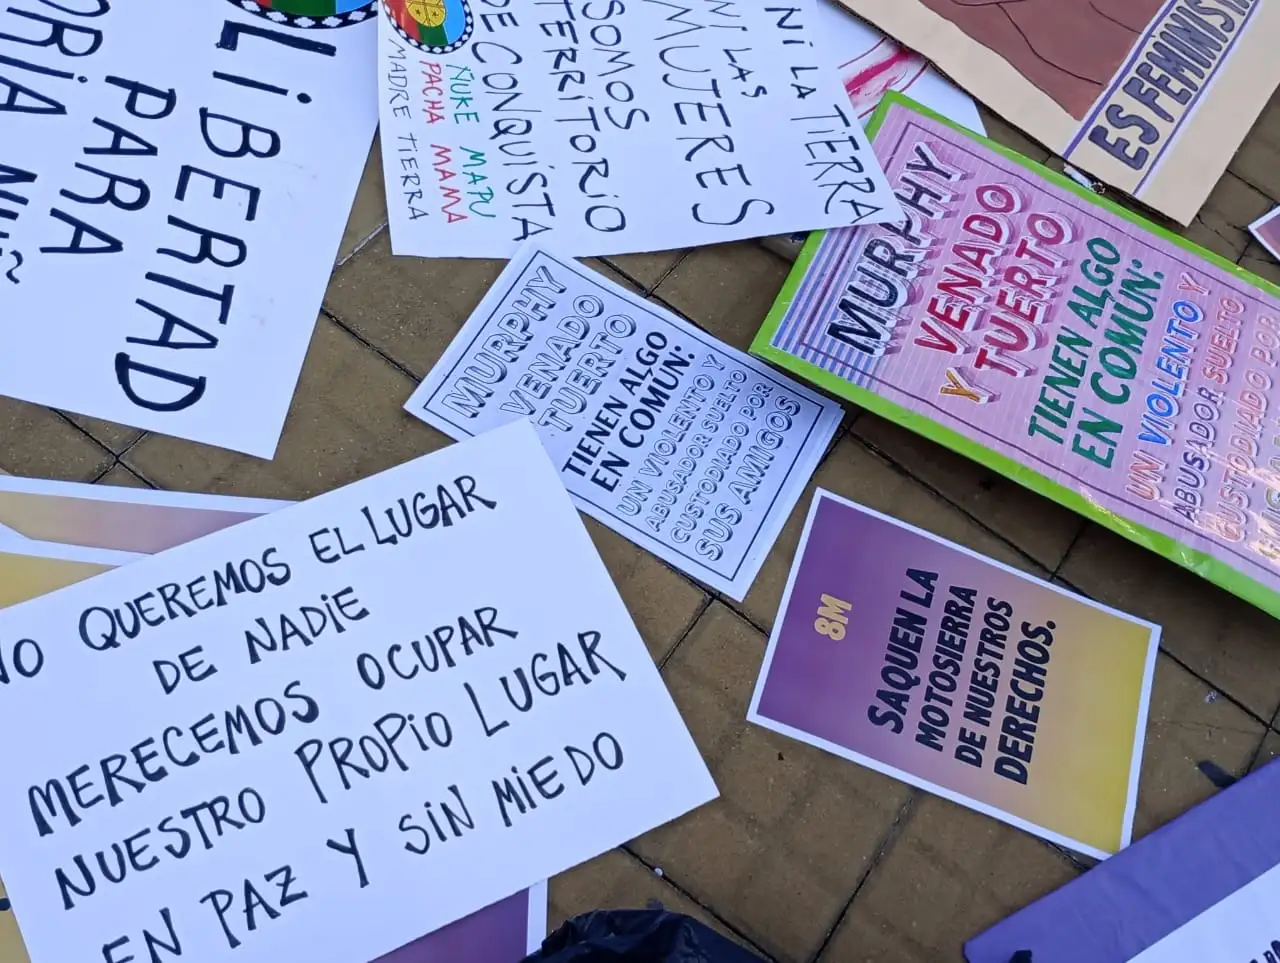 LIBERTAD
PARA
NI LA TIERRA
NI LAS
MUJERES
SOMOS
TERRITORIO
DE CONQUISTA
ÑUKE MAPU
PACHA MAMA
MADRE TIERRA
ES FEMINISTA
MURPHY
VENADO
TUERTO
TIENEN ALGO
EN COMÚN:
UN VIOLENTO Y
ABUSADOR SUELTO
CUSTODIADO POR
SUS AMIGOS
MURPHY
VENADO
Y TUERTO
TIENEN ALGO
EN COMÚN:
UN VIOLENTO Y
ABUSADOR SUELTO
CUSTODIADO POR
NO QUEREMOS EL LUGAR
DE NADIE
MERECEMOS OCUPAR
NUESTRO PROPIO LUGAR
EN PAZ Y SIN MIEDO
8M
SAQUEN LA
MOTOSIERRA
DE NUESTROS
DERECHOS.